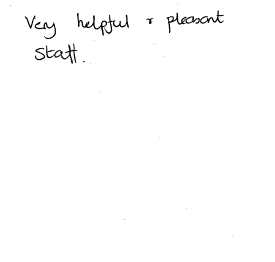 Very helpful & pleasant
Staff.